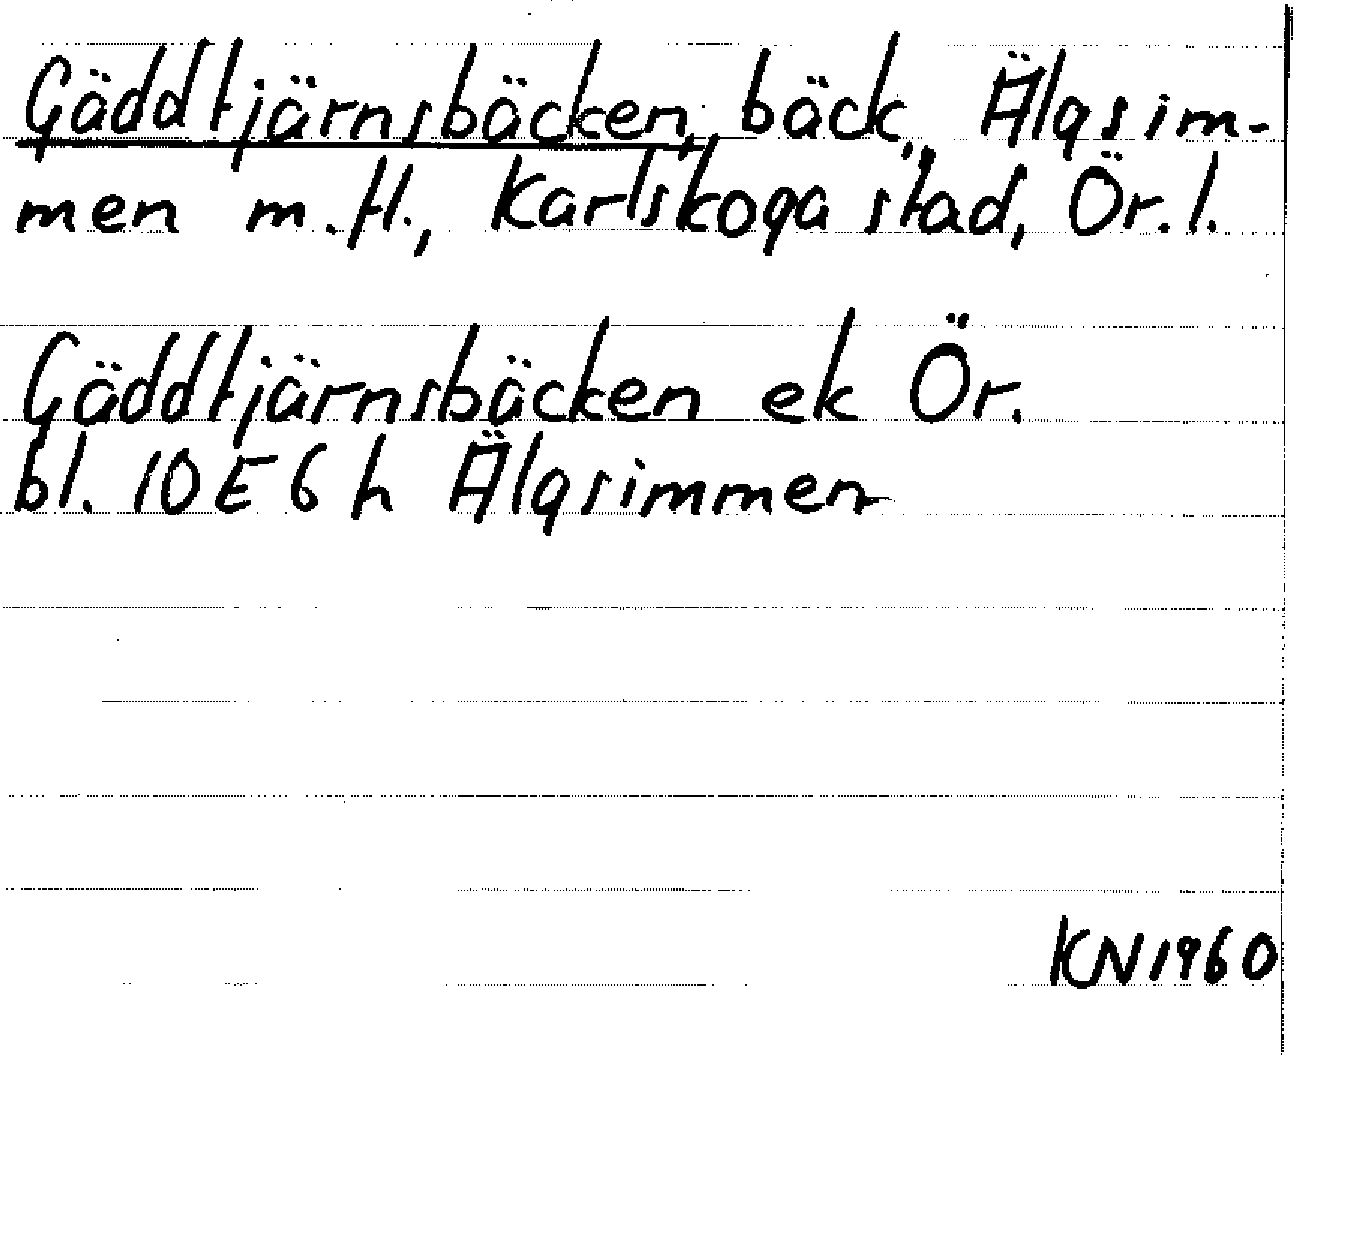 Gäddtjärnsbäcken, bäck, Älgsim-
men m.fl., Karlskoga stad, Ör.l.
Gäddtjärnsbäcken ek Ör.
bl. 10E6h Älgsimmen
KN1960